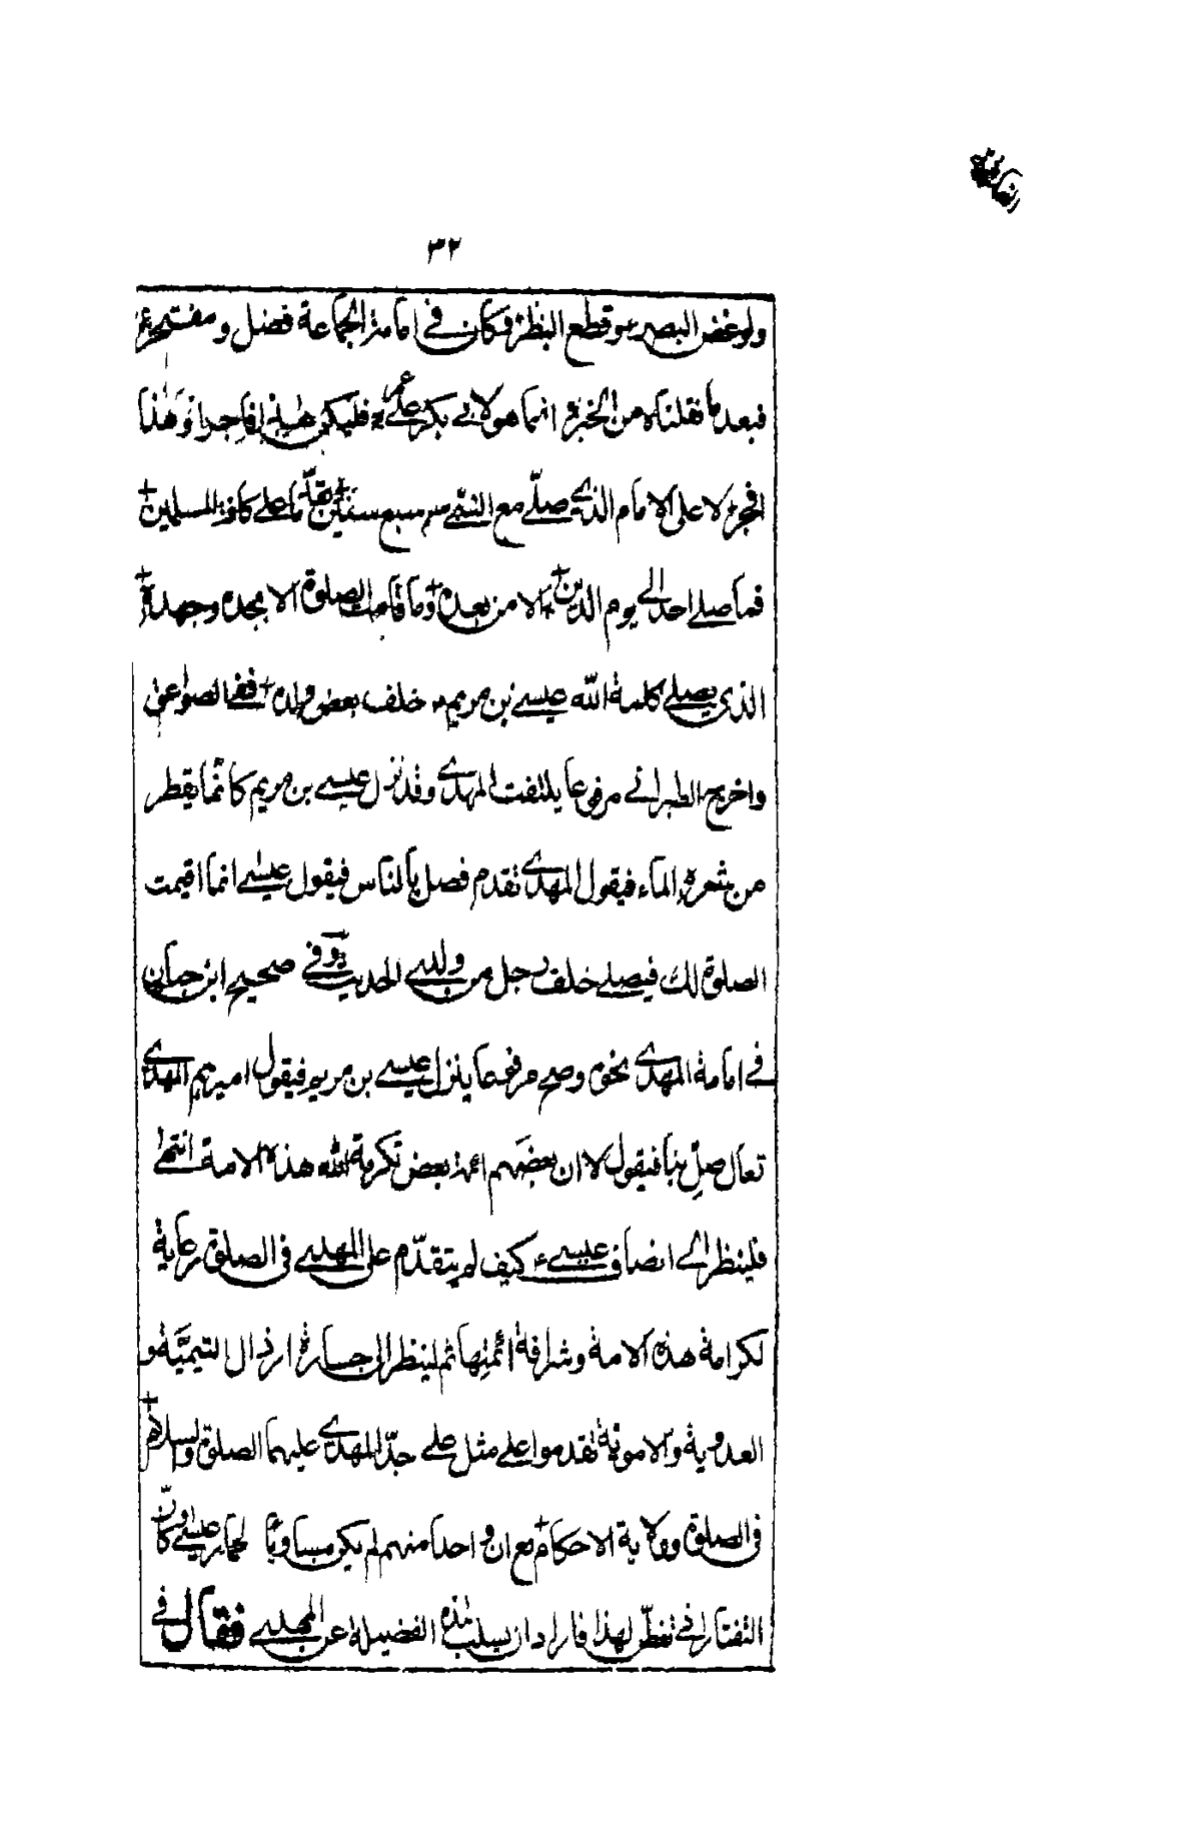 ٣٢
ولو غض البصر وقطع النظر فكان في امامة الجماعة فضل ومفتخر
فبعد ما نقلناه من الخبر انما هو لابي بكر وعمر فليكن هذا فاجرا وهذا
افجر لا على الامام الذي صلے مع النبي سبع سنين قبل ما على كافة المسلمين
فما صلے احد الے يوم الدين الا من بعده وما قامت الصلوة الا بجده وجهده
الذي يصلے كلمة الله عيسے بن مريم خلف بعض ولده ففي الصواعق
واخرج الطبرانے مرفوعا يلتفت المهدے وقد نزل عيسے بن مريم كانما يقطر
من شعره الماء فيقول المهدے تقدم فصل بالناس فيقول عيسے انما اقيمت
الصلوة لك فيصلے خلف رجل من ولدي الحديث وفي صحيح ابن حبان
في امامة المهدے نحوه وصح مرفوعا ينزل عيسے بن مريم فيقول اميرهم المهدے
تعال صلِّ بنا فيقول لا ان بعضهم ائمة بعض تكرمة الله هذه الامة انتهے
فلينظر الے انصاف عيسےء كيف لم يتقدّم على المهدي في الصلوة رعاية
لكرامة هذه الامة وشرافة ائمتها ثم لينظر الى جسارة ارذال التيميَّة و
العدوية والاموية تقدموا على مثل علے جدّ المهدے عليهما الصلوة والسلام
في الصلوة وولاية الاحكام مع ان واحدا منهم لم يكن مساويًا عيسے وكانّ
التفتازانے تفطّن لهذا فاراد ان يسلب هذه الفضيلة عن المهدي فقال في